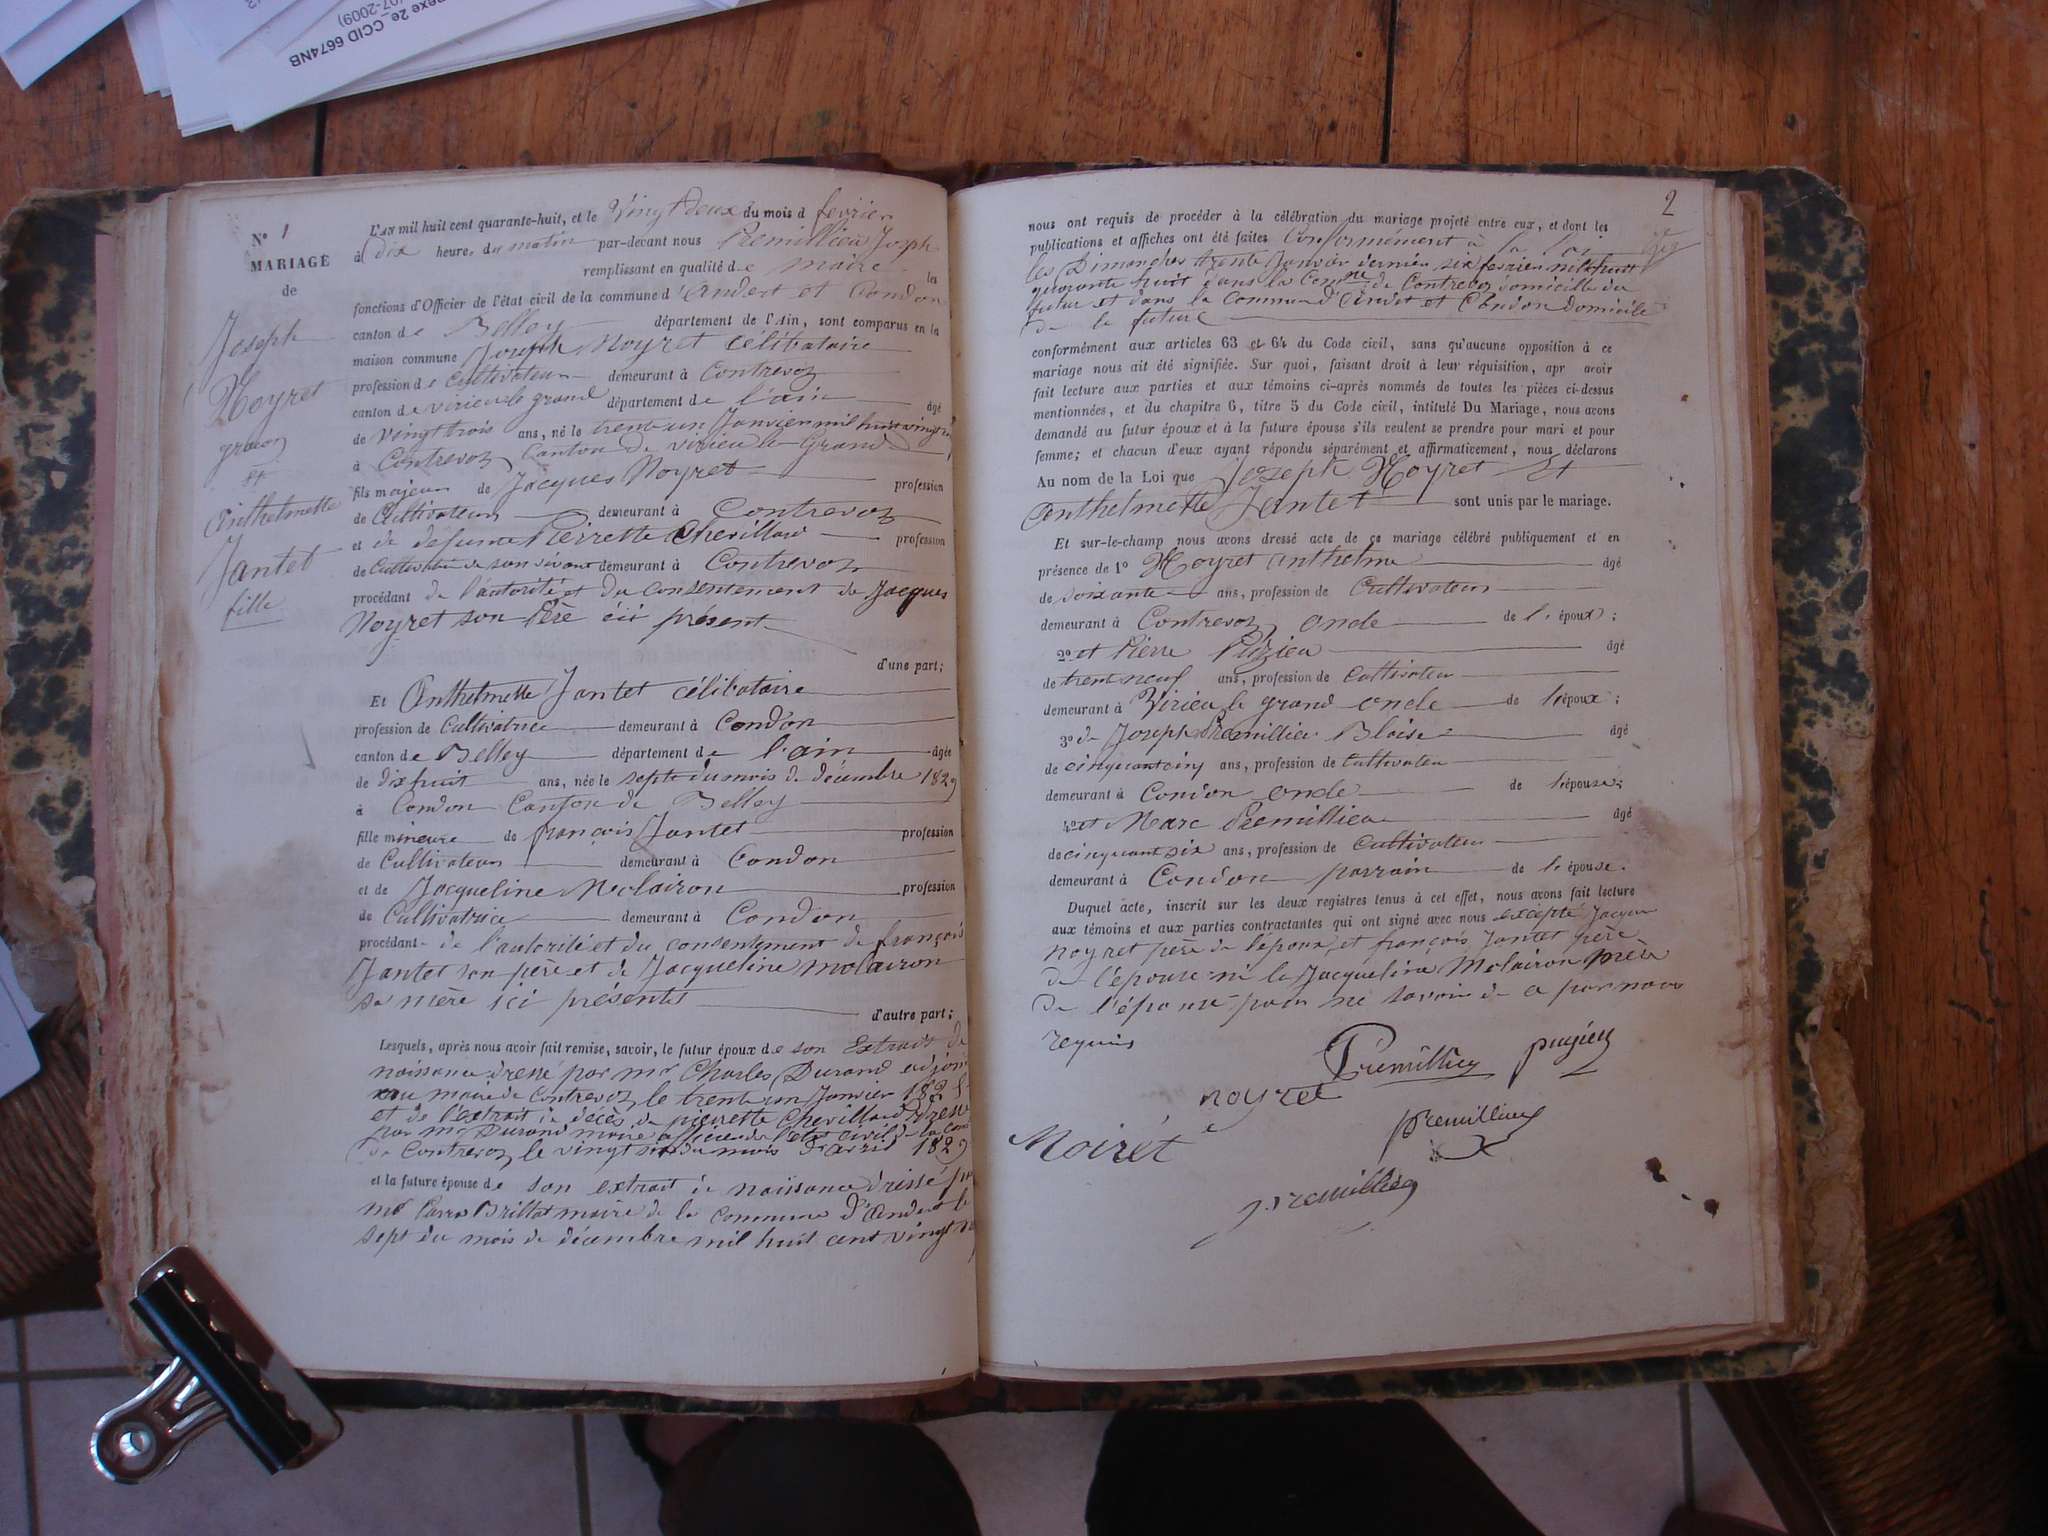 exe 2e_CCID 6674NB
07-2009)
N° 1
MARIAGE
de
Joseph
Noyret
garçon
et
Anthelmette
Jantet
fille
L'AN mil huit cent quarante-huit, et le Vingt deux du mois d fevrier
à dix heure, du matin par-devant nous Premillieu Joseph
remplissant en qualité de maire les
fonctions d'Officier de l'état civil de la commune d'Andert et Condon
canton de Belley département de l'Ain, sont comparus en la
maison commune Joseph Noyret célibataire
profession de Cultivateur demeurant à Contrevoz
canton de virieu le grand département de l'ain âgé
de vingt trois ans, né le trente un Janvier mil huit vingt
à Contrevoz Canton de virieu le Grand
fils majeur de Jacques Noyret profession
de Cultivateur demeurant à Contrevoz
et de defunte Pierrette Chevillard profession
de Cultivatrice de son vivant demeurant à Contrevoz
procédant de l'autorité et du consentement de Jacques
Noyret son Père ici présent
d'une part;
Et Anthelmette Jantet célibataire
profession de Cultivatrice demeurant à Condon
canton de Belley département de l'ain âgée
de dix huit ans, née le sept du mois de décembre 1829
à Condon Canton de Belley
fille mineure de françois Jantet profession
de Cultivateur demeurant à Condon
et de Jacqueline Molairon profession
de Cultivatrice demeurant à Condon
procédant de l'autorité et du consentement de françois
Jantet son père et de Jacqueline Molairon
sa mère ici présents
d'autre part;
Lesquels, après nous avoir fait remise, savoir, le futur époux de son Extrait de
naissance dressé par mr Charles Durand adjoint
au maire de Contrevoz le trente un Janvier 182
et de l'extrait de décès de pierrette Chevillard dressé
par mr Durand maire officier de l'état civil de la Com
de Contrevoz le vingt du mois d'avril 1829
et la future épouse de son extrait de naissance dressé par
mr Brillat maire de la commune d'Andert le
sept du mois de décembre mil huit cent vingt
2
nous ont requis de procéder à la célébration du mariage projeté entre eux, et dont les
publications et affiches ont été faites Conformément à la loi
les Dimanches trente Janvier dernier six fevrier mil huit
quarante huit dans la Comne de Contrevoz domicile du
futur et dans la Commune d'Andert et Condon Domicile
de la future
conformément aux articles 63 et 64 du Code civil, sans qu'aucune opposition à ce
mariage nous ait été signifiée. Sur quoi, faisant droit à leur réquisition, apr avoir
fait lecture aux parties et aux témoins ci-après nommés de toutes les pièces ci-dessus
mentionnées, et du chapitre 6, titre 5 du Code civil, intitulé Du Mariage, nous avons
demandé au futur époux et à la future épouse s'ils veulent se prendre pour mari et pour
femme; et chacun d'eux ayant répondu séparément et affirmativement, nous déclarons
Au nom de la Loi que Joseph Noyret Et
Anthelmette Jantet sont unis par le mariage.
Et sur-le-champ nous avons dressé acte de ce mariage célébré publiquement et en
présence de 1° Noyret anthelme âgé
de soixante ans, profession de Cultivateur
demeurant à Contrevoz oncle de l'époux;
2° et Pierre Pugieu âgé
de trent neuf ans, profession de Cultivateur
demeurant à Virieu le grand oncle de l'époux;
3° de Joseph Premillieu Blaise âgé
de cinquant cinq ans, profession de Cultivateu
demeurant à Condon oncle de l'épouse;
4° et Marc Premillieu âgé
de cinquant six ans, profession de Cultivateur
demeurant à Condon parrain de l'épouse.
Duquel acte, inscrit sur les deux registres tenus à cet effet, nous avons fait lecture
aux témoins et aux parties contractantes qui ont signé avec nous excepté Jacques
Noyret père de l'époux, et françois Jantet père
de l'épouse ni la Jacqueline Molairon mère
de l'épouse pour ne savoir de ce par nous
requis
Premillieu pugieu
noyret
Premillieu
Noirét
j. premillieu